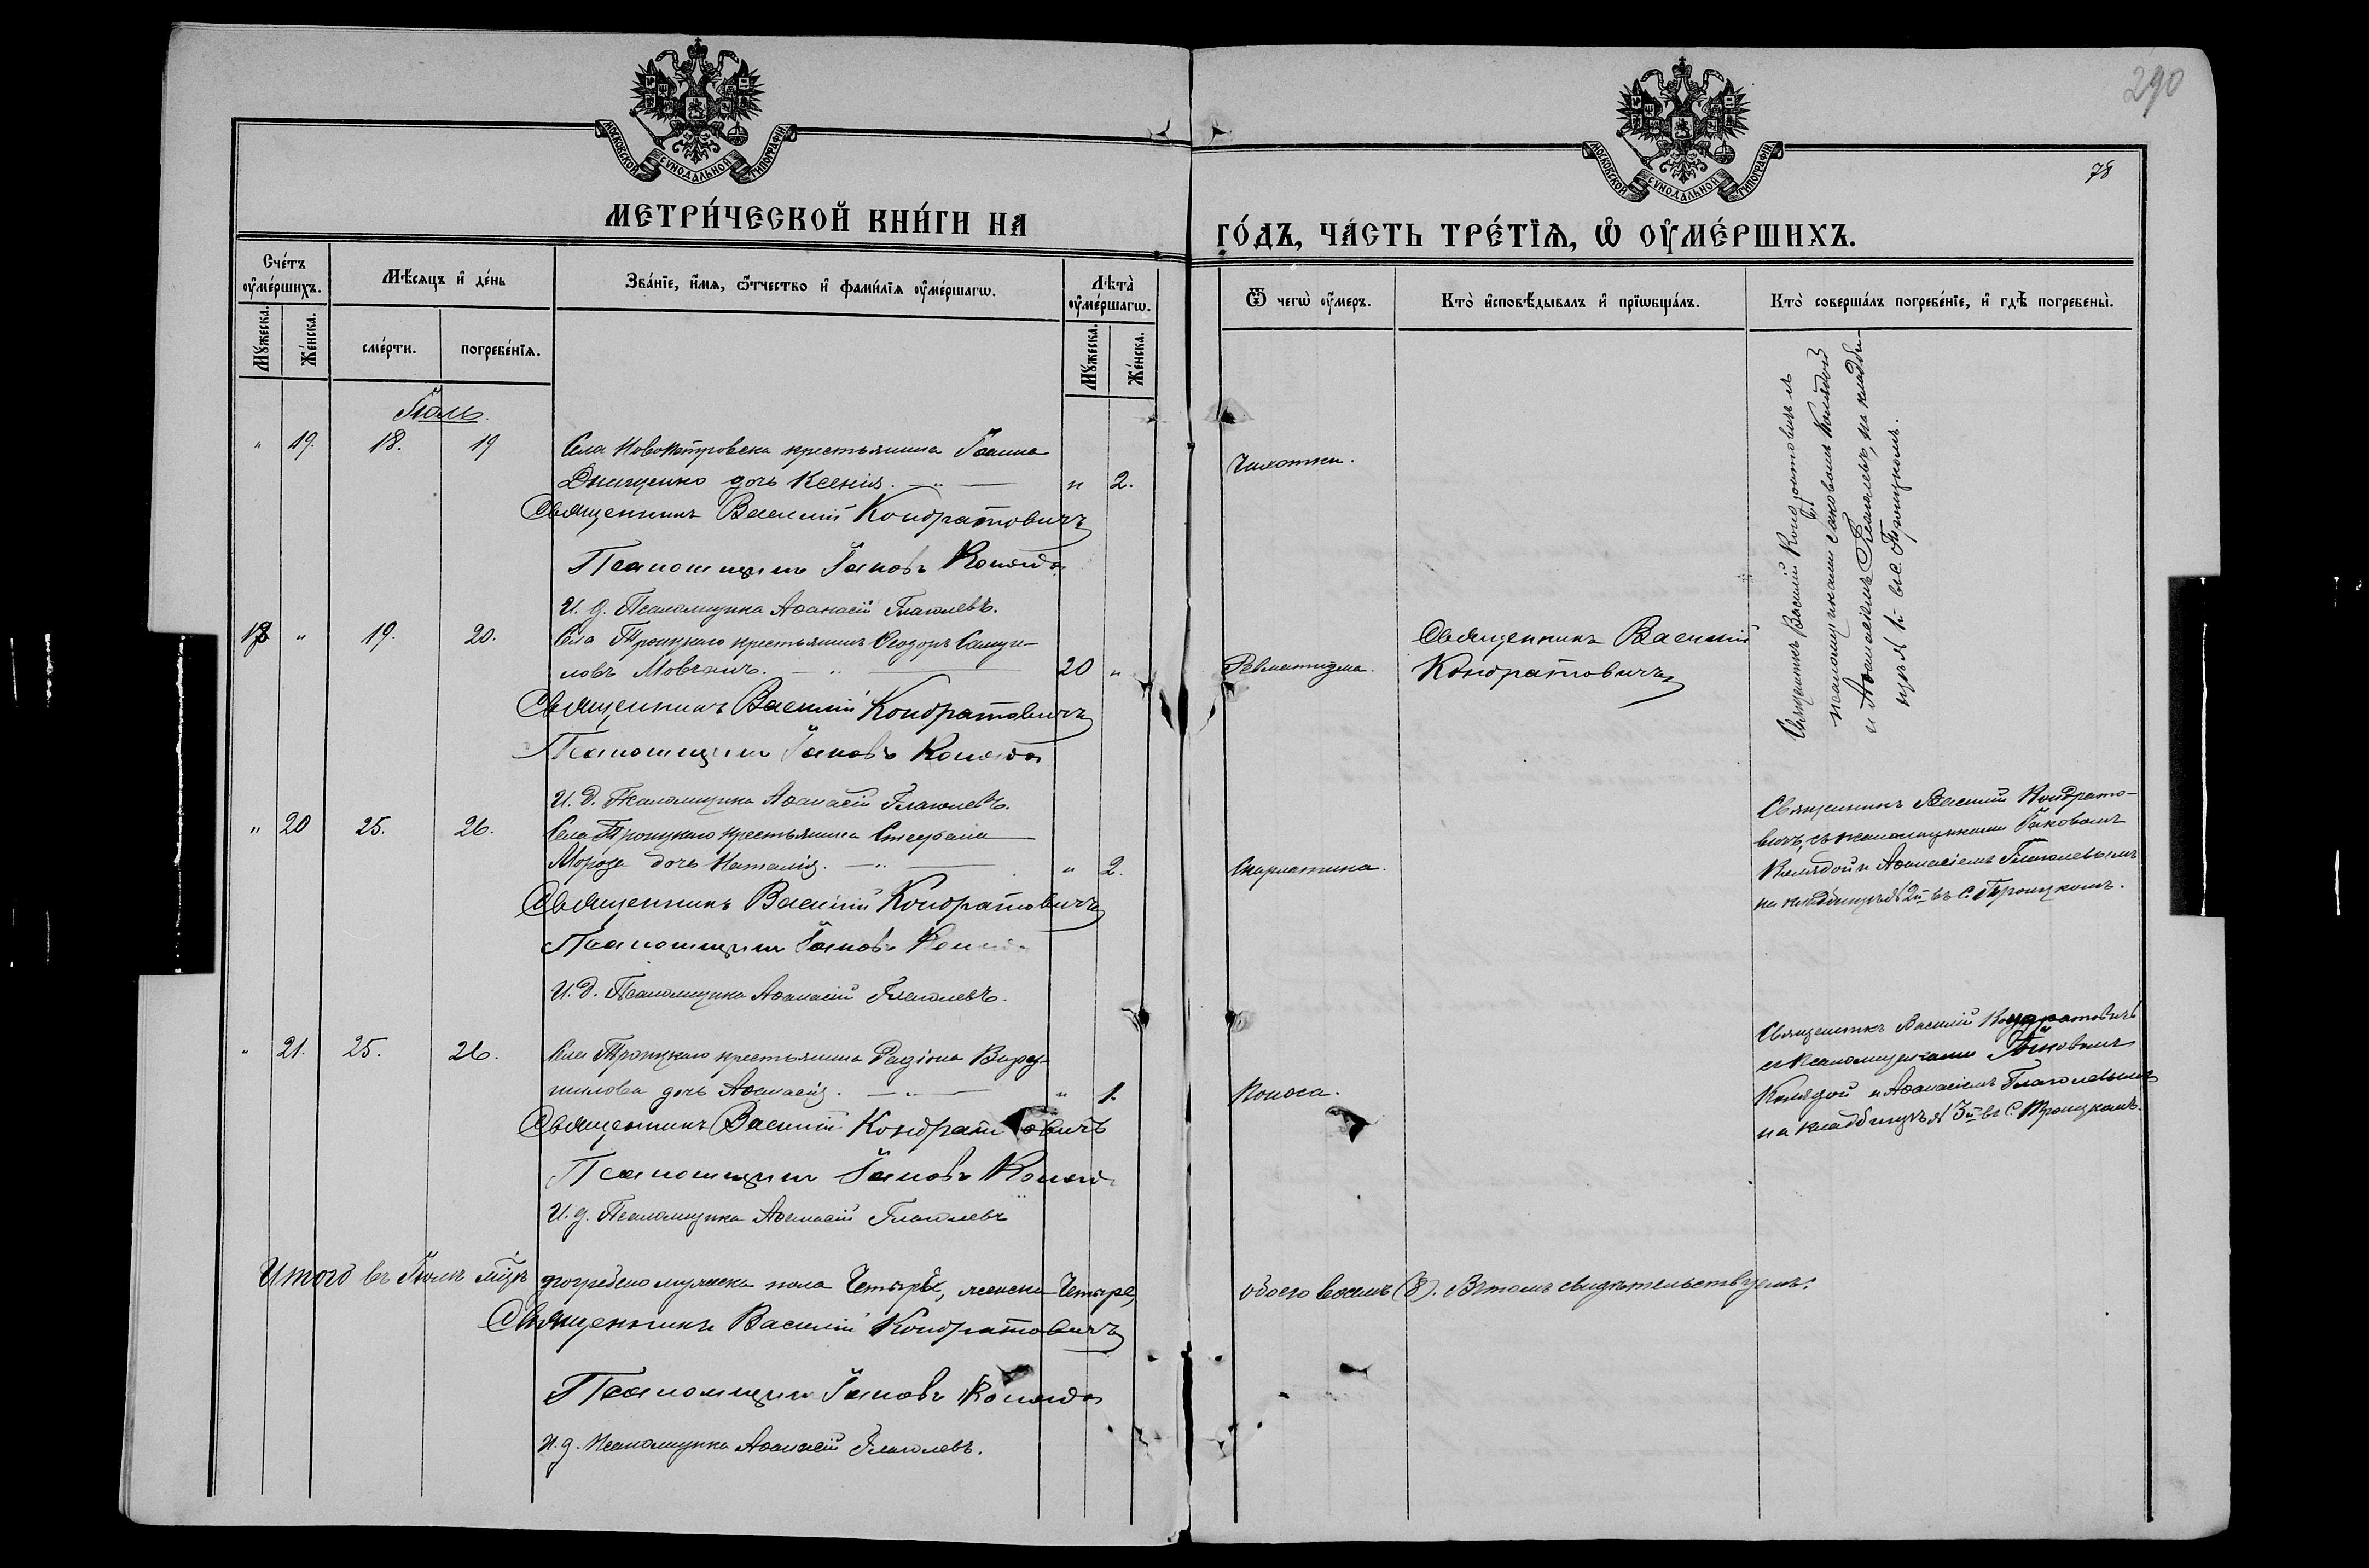 290
78
МОСКОВСКОЙ СѴНОДАЛЬНОЙ ТИПОГРАФІИ
МОСКОВСКОЙ СѴНОДАЛЬНОЙ ТИПОГРАФІИ
МЕТРИ́ЧЕСКОЙ КНИ́ГИ НА
ГО́ДЪ, ЧА́СТЬ ТРЕ́ТІѦ, Ѡ ОУ҆МЕ́РШИХЪ.
Сче́тъ оу҆ме́ршихъ.
Мѣ́сяцъ и҆ де́нь
Зва́нїе, и҆́мѧ, ѻ҆́тчество и҆ фами́лїѧ оу҆ме́ршагѡ.
Лѣта̀ оу҆ме́ршагѡ.
Ѿ чегѡ̀ оу҆́меръ.
Кто̀ и҆сповѣ́дывалъ и҆ прїѡбща́лъ.
Кто̀ соверша́лъ погребе́нїе, и҆ гдѣ̀ погребены̀.
Мꙋ́жеска.
Же́нска.
сме́рти.
погребе́нїѧ.
Мꙋ́жеска.
Же́нска.
Іюль.
" 19. 18. 19 Села Новопетровска крестьянина Іоанна
дочь Ксенія. " 2. Чахотки.
Священникъ Василій Кондратовичъ
Псаломщикъ Іаковъ Коляда
И. д. Псаломщика Аѳанасій Глаголевъ.
Священникъ Василій Кондратовичъ съ
псаломщиками Іаковомъ Колядой
и Аѳанасіемъ Глаголевъ, на кладби-
щѣ № 1й въ с. Троицкомъ.
" 19. 20. Села Троицкаго крестьянинъ Ѳеодоръ
новъ Мовчанъ. 20 " Ревматизма.
Священникъ Василій
Кондратовичъ
Священникъ Василій Кондратовичъ
Псаломщикъ Іаковъ Коляда
И. д. Псаломщика Аѳанасій Глаголевъ.
" 20 25. 26. Села Троицкаго крестьянина Стефана
Мороза дочь Наталія. " 2. Скарлатина.
Священникъ Василій Кондрато-
вичъ, съ псаломщиками Іаковомъ
Колядой и Аѳанасіемъ Глаголевымъ
на кладбищѣ № 2й въ с. Троицкомъ.
Священникъ Василій Кондратовичъ
Псаломщикъ Іаковъ
И. д. Псаломщика Аѳанасій Глаголевъ.
" 21. 25. 26. Села Троицкаго крестьянина Радіона
дочь Аѳанасія. " 1. Поноса.
Священникъ Василій Кондратовичъ
съ псаломщиками Іаковомъ
Колядой и Аѳанасіемъ Глаголевымъ
на кладбищѣ № 3й въ с. Троицкомъ.
Священникъ Василій Кондратовичъ
Псаломщикъ Іаковъ Коляда
И. д. Псаломщика Аѳанасій Глаголевъ
Итого въ Іюлѣ мѣсяцѣ погребено мужеска пола Четыре, женска Четыре, обоего восемь (8). Въ томъ свидѣтельствуемъ:
Священникъ Василій Кондратовичъ
Псаломщикъ Іаковъ Коляда
И. д. Псаломщика Аѳанасій Глаголевъ.